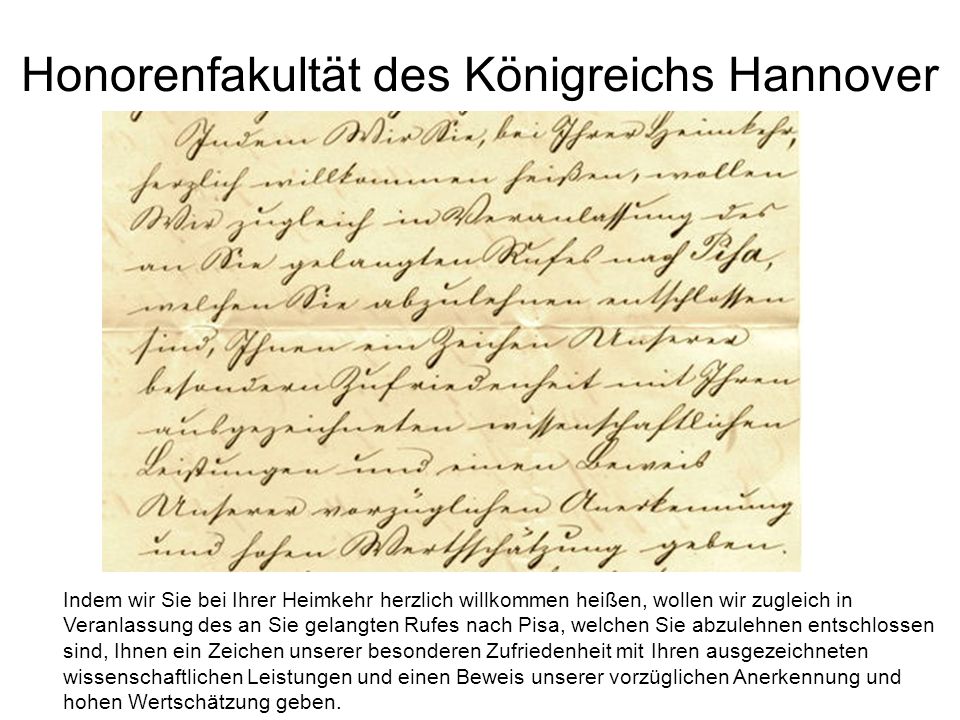 Honorenfakultät des Königreichs Hannover
Indem Wir Sie, bei Ihrer Heimkehr,
herzlich willkommen heißen, wollen
Wir zugleich in Veranlassung des
an Sie gelangten Rufes nach Pisa,
welchen Sie abzulehnen entschlossen
sind, Ihnen ein Zeichen Unserer
besondern Zufriedenheit mit Ihren
ausgezeichneten wissenschaftlichen
Leistungen und einen Beweis
Unserer vorzüglichen Anerkennung
und hohen Werthschätzung geben.
Indem wir Sie bei Ihrer Heimkehr herzlich willkommen heißen, wollen wir zugleich in
Veranlassung des an Sie gelangten Rufes nach Pisa, welchen Sie abzulehnen entschlossen
sind, Ihnen ein Zeichen unserer besonderen Zufriedenheit mit Ihren ausgezeichneten
wissenschaftlichen Leistungen und einen Beweis unserer vorzüglichen Anerkennung und
hohen Wertschätzung geben.